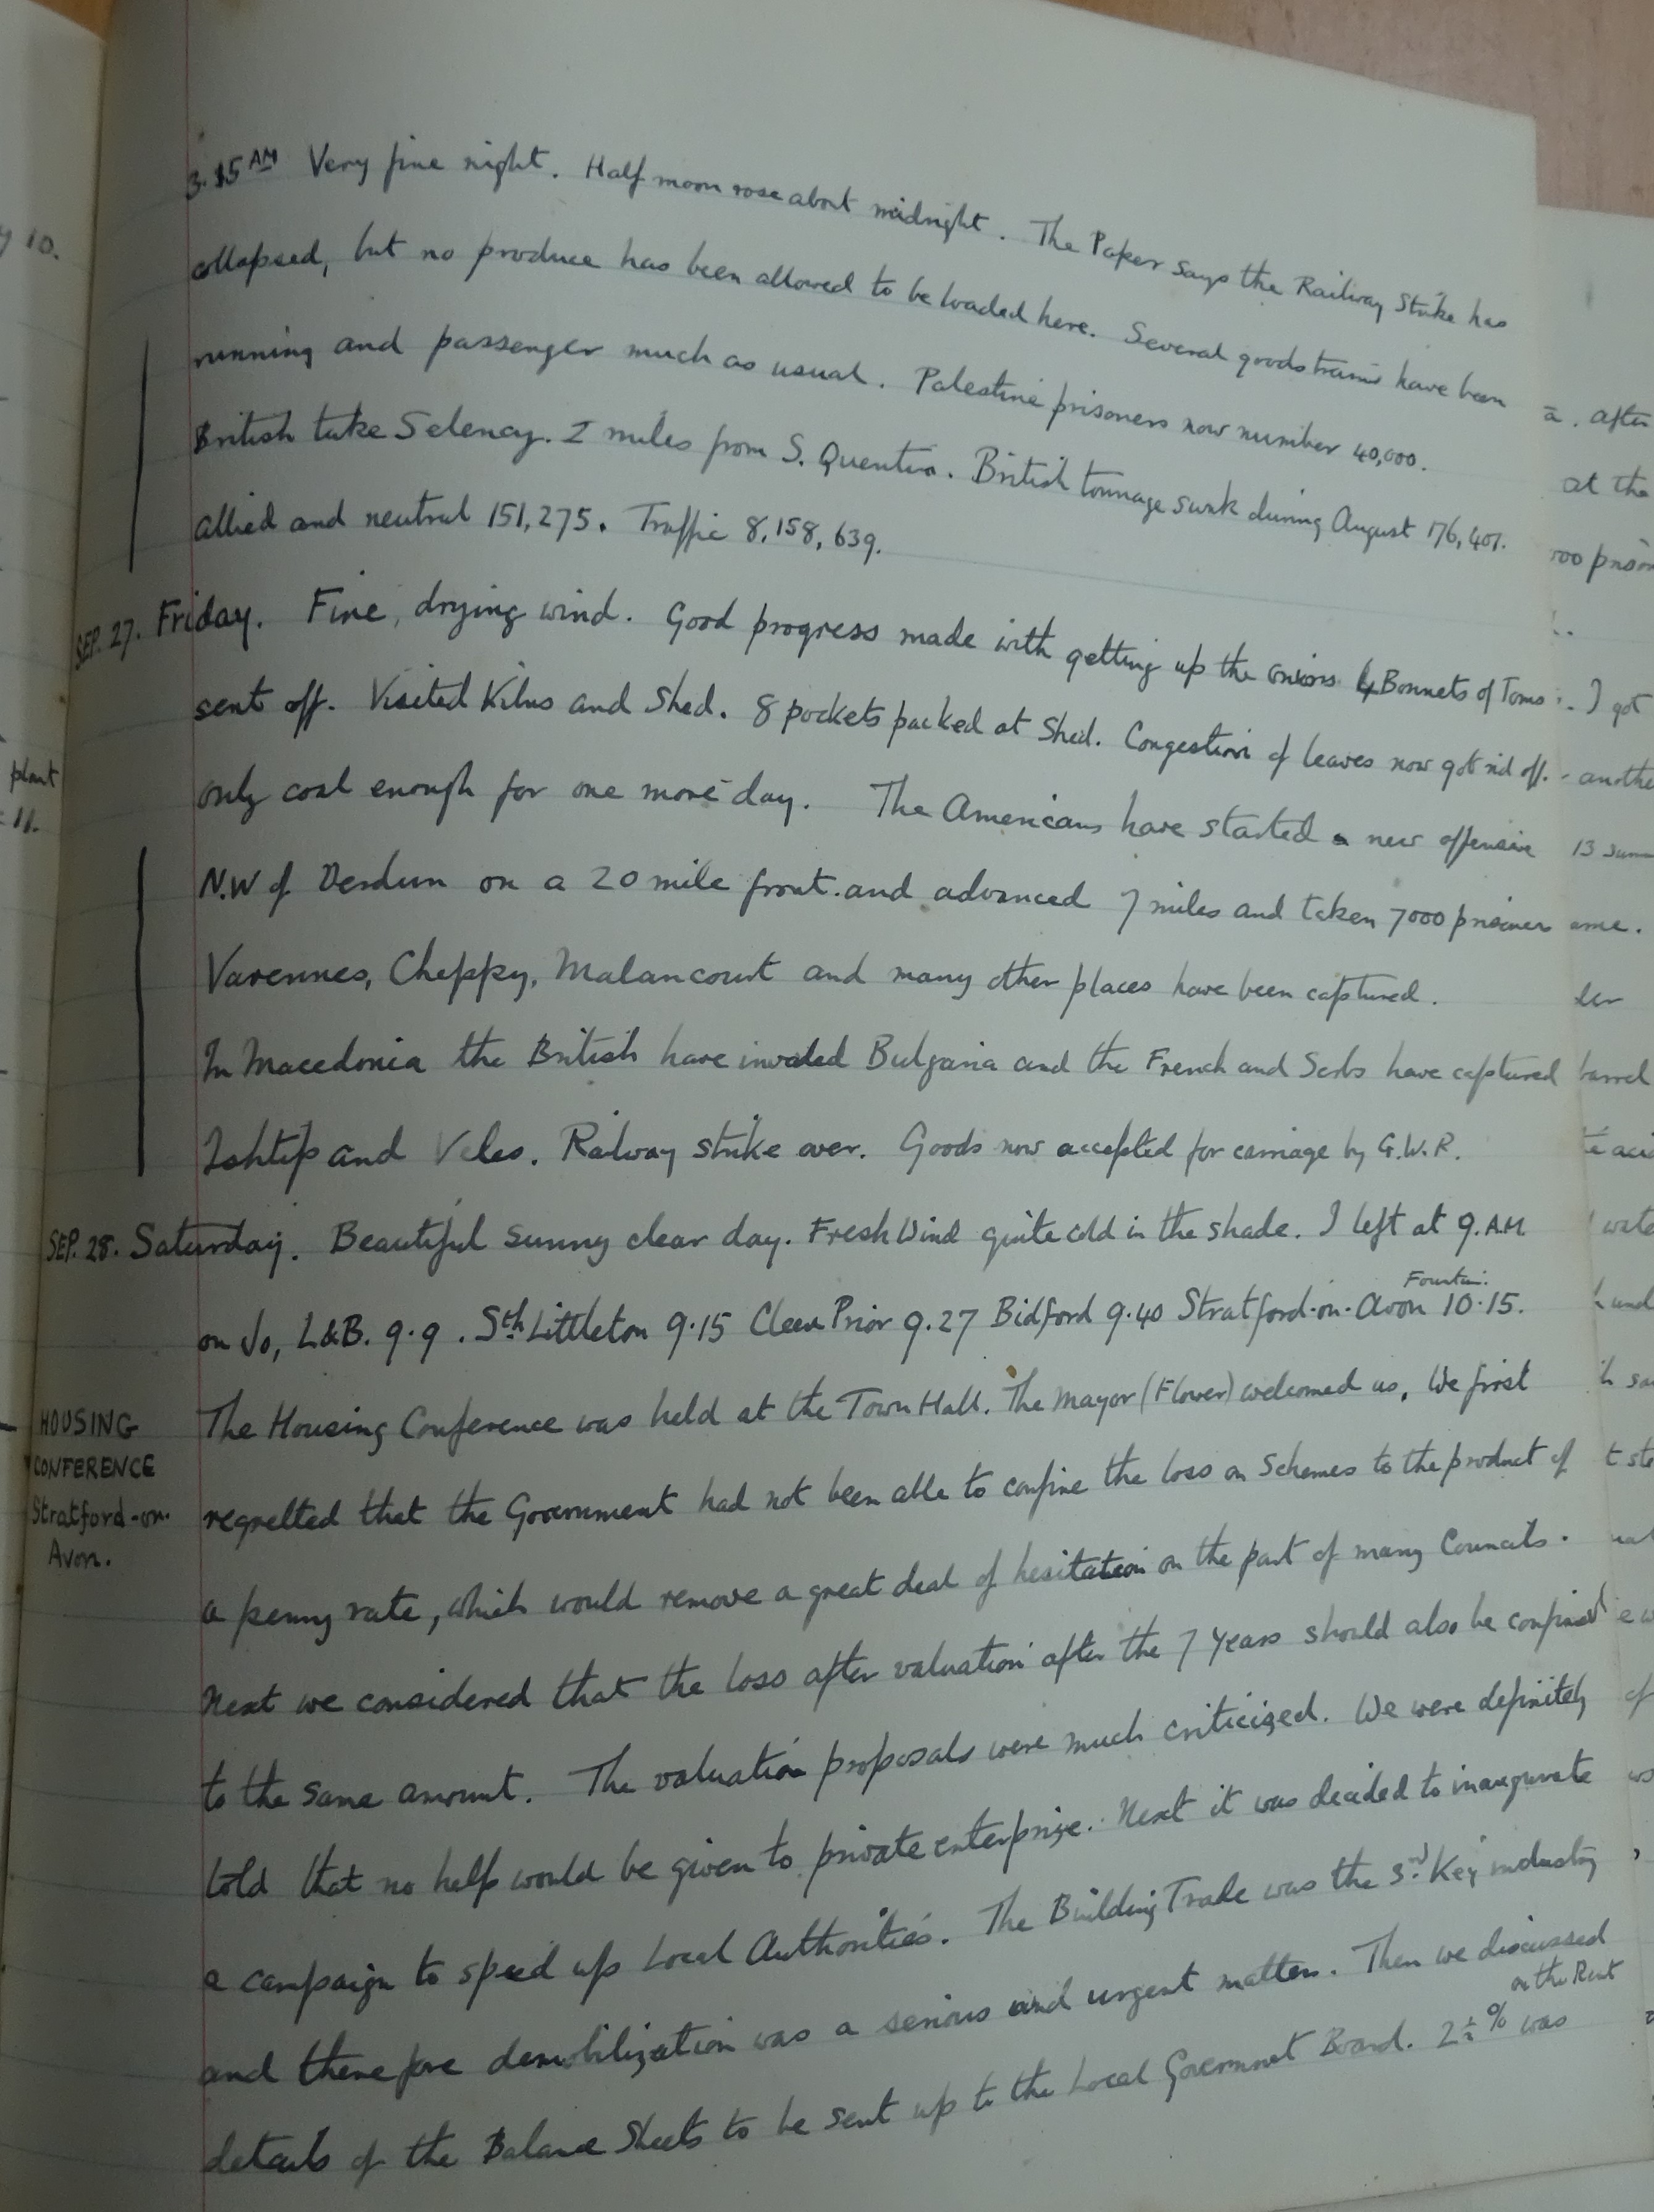 3.15 AM Very fine night. Half moon rose about midnight. The Paper says the Railway Strike has
collapsed, but no produce has been allowed to be loaded here. Several goods trains have been
running and passenger much as usual. Palestine prisoners now number 40,000.
British take Selency. 2 miles from S. Quentin. British tonnage sunk during August 176,401.
allied and neutral 151,275. Traffic 8,158,639.
SEP. 27. Friday. Fine, drying wind. Good progress made with getting up the onions 4 Bonnets of Toms
sent off. Visited Kilns and Shed. 8 pockets packed at Shed. Congestion of leaves now got rid off.
only coal enough for one more day. The Americans have started a new offensive
N.W of Verdun on a 20 mile front. and advanced 7 miles and taken 7000 prisoners
Varennes, Cheppy, Malancourt and many other places have been captured.
In Macedonia the British have invaded Bulgaria and the French and Serbs have captured
Ishtip and Veles. Railway strike over. Goods now accepted for carriage by G.W.R.
SEP. 28. Saturday. Beautiful sunny clear day. Fresh Wind quite cold in the shade. I left at 9.A.M.
on Jo, L&B. 9.9. Sth Littleton 9.15 Cleeve Prior 9.27 Bidford 9.40 Stratford-on-Avon Fountain 10.15.
HOUSING
CONFERENCE
Stratford-on-
Avon.
The Housing Conference was held at the Town Hall. The Mayor (Flower) welcomed us, We first
regretted that the Government had not been able to confine the loss on Schemes to the product of
a penny rate, which would remove a great deal of hesitation on the part of many Councils.
Next we considered that the loss after valuation after the 7 years should also be confined
to the same amount. The valuation proposals were much criticized. We were definitely
told that no help would be given to private enterprize. Next it was decided to inaugurate
a campaign to speed up Local Authorities. The Building Trade was the 3rd Key industry
and therefore demobilization was a serious and urgent matter. Then we discussed
details of the Balance Sheets to be sent up to the Local Governmet Board. 2½% on the Rent was
y 10.
plant
11.
a. after
at the
I got
another
13
barrel
of